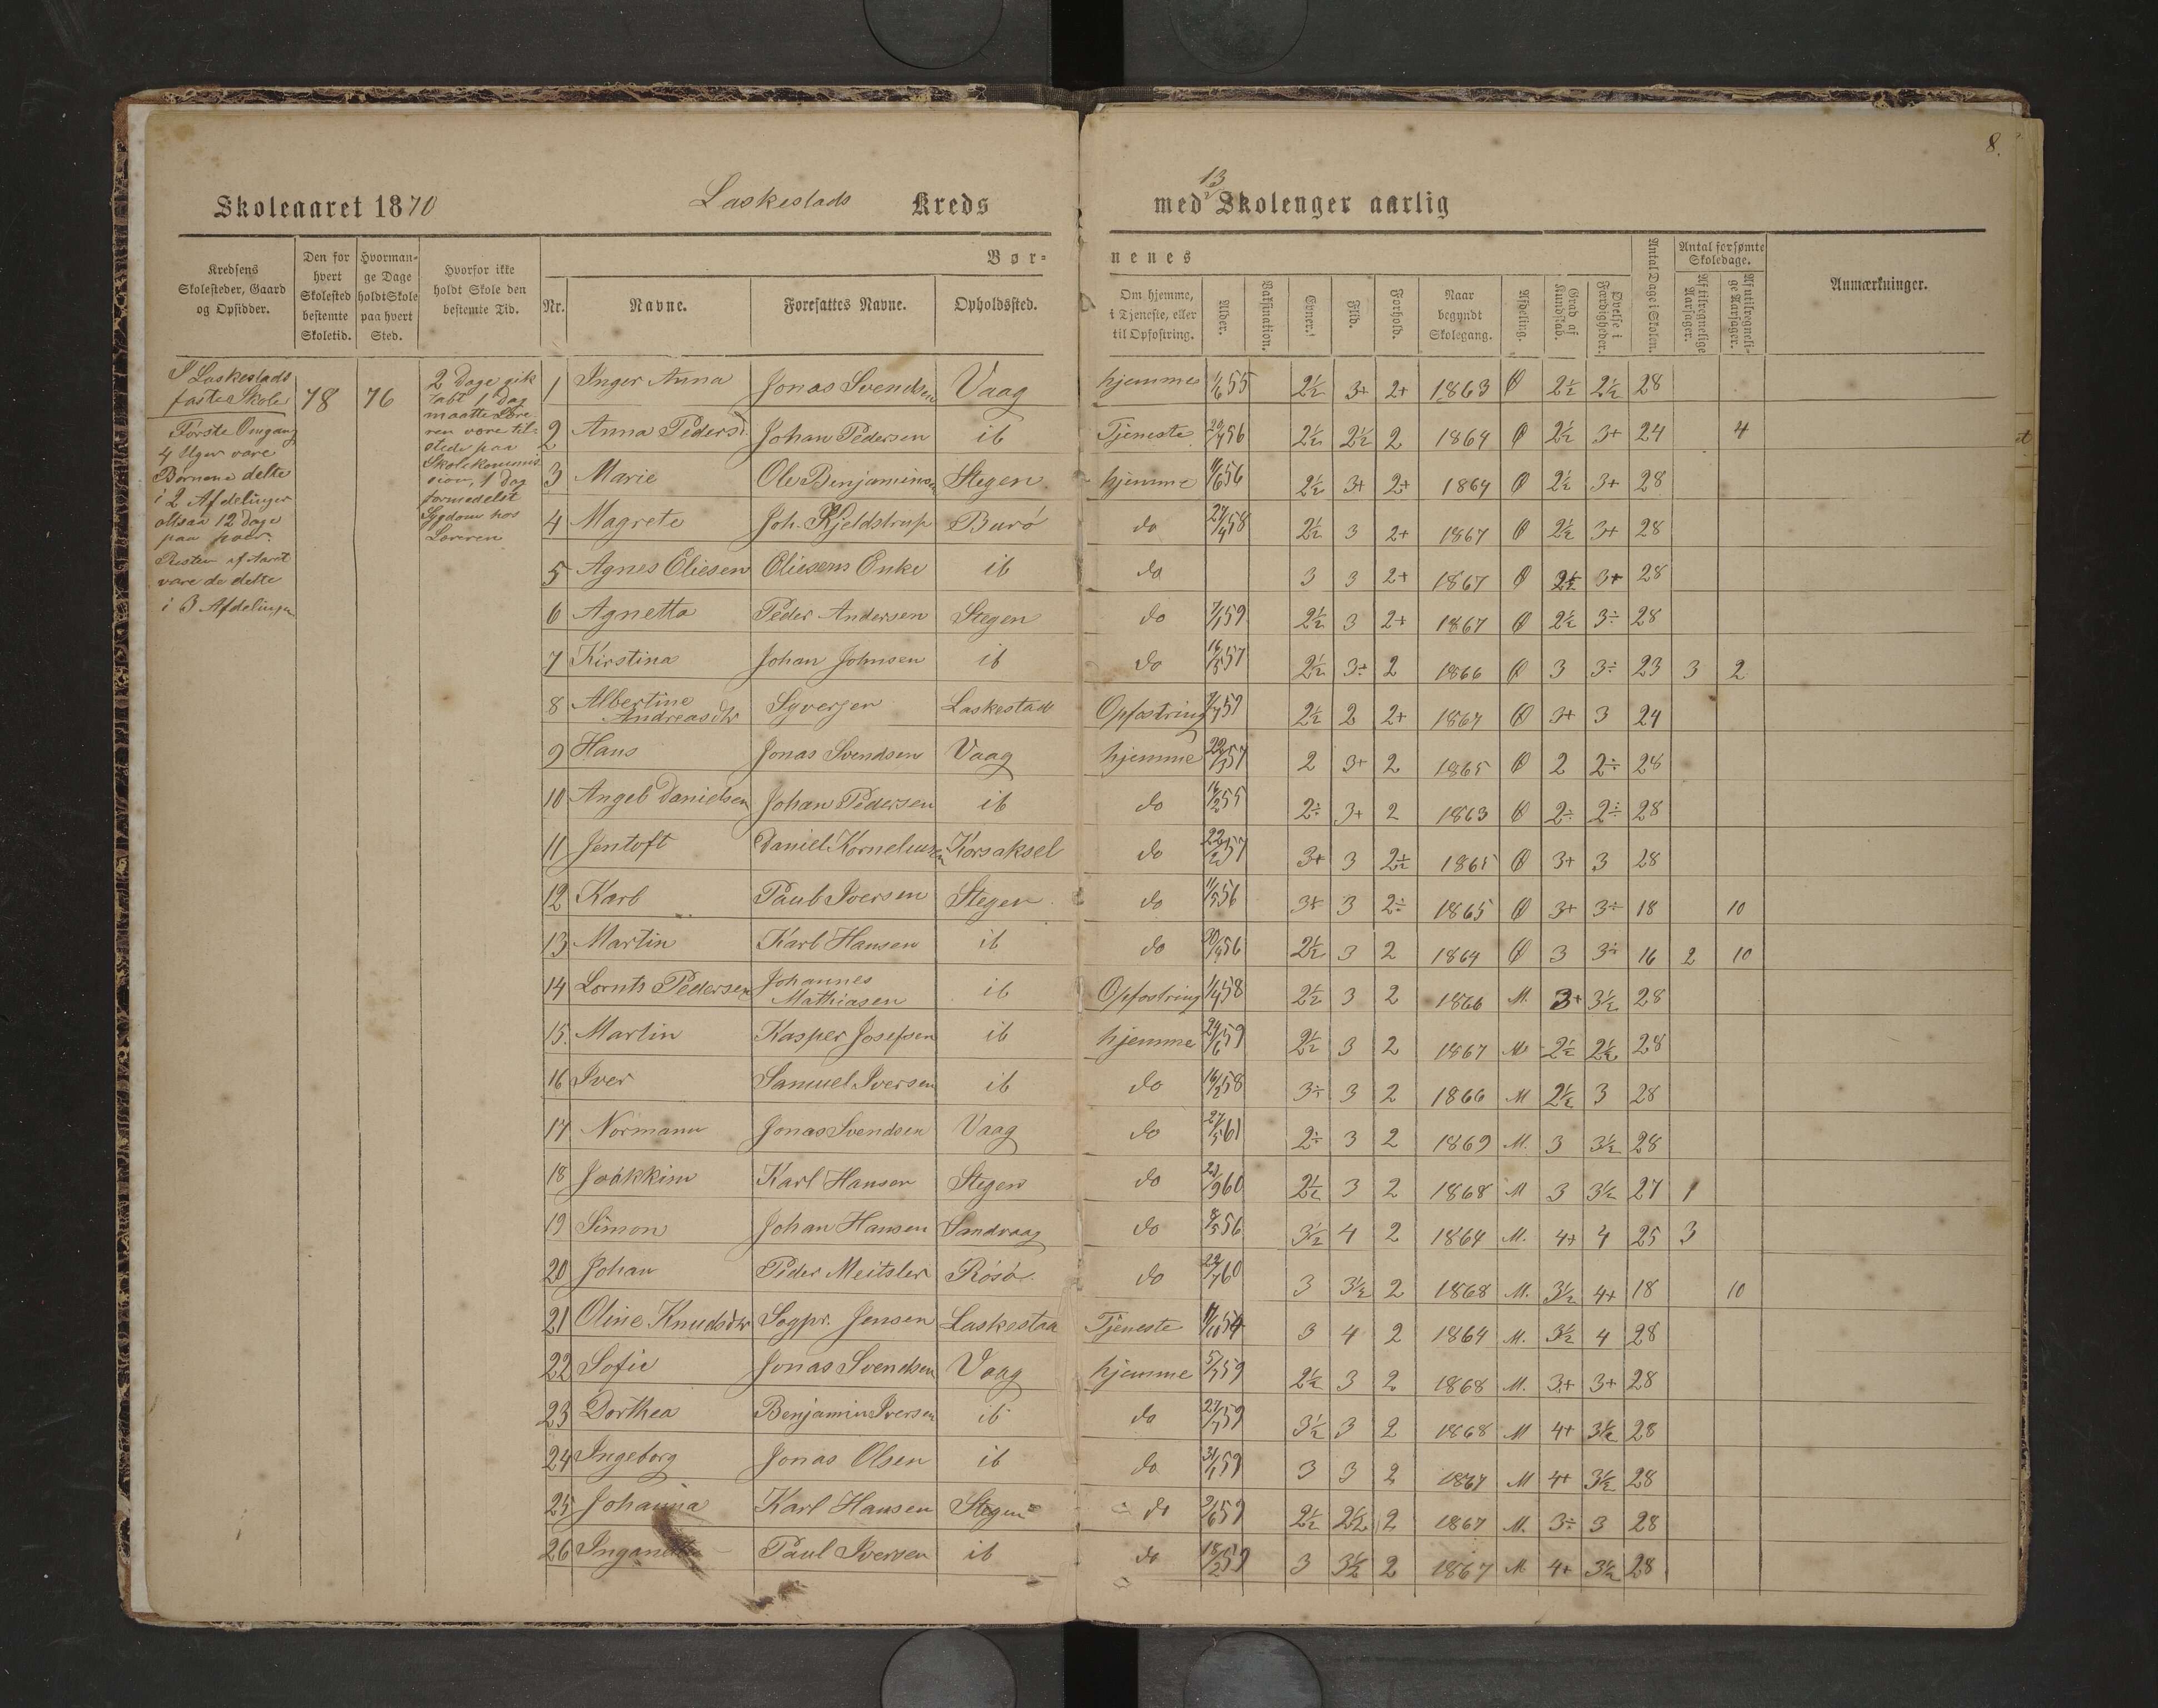 8.
Skoleaaret 1870 Laskestads Kreds med 13 Skolenger aarlig
Kredsens Skolesteder, Gaard og Opsidder.
Den for hvert Skolested bestemte Skoletid.
Hvormange Dage holdt Skole paa hvert Sted.
Hvorfor ikke holdt Skole den bestemte Tid.
Bør-
nenes
Nr.
Navne.
Foresattes Navne.
Opholdssted.
Om hjemme, i Tjeneste, eller til Opfostring.
Alder.
Vaksination.
Evner.
Flid.
Forhold.
Naar begyndt Skolegang.
Afdeling.
Grad af Kundskab.
Øvelse i Færdigheder.
Antal Dage i Skolen.
Antal forsømte Skoledage.
Af tilregnelige Aarsager.
Af utilregnelige Aarsager.
Anmærkninger.
I Laskestads
faste Skole
78
76
Første Omgang
4 Uger vare
Børnene delte
i 2 Afdelinger
altsaa 12 Dage
paa hver.
Resten af Aaret
vare de delte
i 3 Afdelinger
2 Dage gik
tabt 1 Dag
maatte Lære-
ren være til-
stede paa
Skolekommis
sion, 1 Dag
formedelst
Sygdom hos
Læreren
1 Inger Anna Jonas Svendsen Vaag hjemme 1/6 55 2½ 3+ 2+ 1863 Ø 2½ 2½ 28
2 Anna Pedersd. Johan Pedersen ib Tjeneste 20/4 56 2½ 2½ 2 1864 Ø 2½ 3+ 24 4
3 Marie Ole Benjaminsen Stegen hjemme 11/6 56 2½ 3+ 2+ 1864 Ø 2½ 3+ 28
4 Magrete Joh. Kjeldstrup Burø do 24/4 58 2½ 3 2+ 1867 Ø 2½ 3+ 28
5 Agnes Eliesen Eliesens Enke ib do 3 3 2+ 1867 Ø 2½ 3+ 28
6 Agnetta Peder Andersen Stegen do 7/1 59 2½ 3 2+ 1867 Ø 2½ 3÷ 28
7 Kirstina Johan Johnsen ib do 16/5 57 2½ 3÷ 2 1866 Ø 3 3÷ 23 3 2
8 Albertine Andreasdtr Syversen Laskestad Opfostring 7/7 59 2½ 2 2+ 1867 Ø 3+ 3 24
9 Hans Jonas Svendsen Vaag hjemme 22/3 57 2 3+ 2 1865 Ø 2 2÷ 28
10 Angel Danielsen Johan Pedersen ib do 16/2 55 2÷ 3+ 2 1863 Ø 2÷ 2÷ 28
11 Jentoft Daniel Korneliusen Korsaksel do 22/2 57 3+ 3 2½ 1865 Ø 3+ 3 28
12 Karl Paul Iversen Stegen do 11/5 56 3+ 3 2÷ 1865 Ø 3+ 3÷ 18 10
13 Martin Karl Hansen ib do 30/4 56 2½ 3 2 1864 Ø 3 3÷ 16 2 10
14 Lornts Pedersen Johannes Mathiasen ib Opfostring 1/4 58 2½ 3 2 1866 M. 3+ 3½ 28
15. Martin Kasper Josefsen ib hjemme 24/6 59 2½ 3 2 1867 M. 2½ 2½ 28
16 Iver Samuel Iversen ib do 16/2 58 3÷ 3 2 1866 M 2½ 3 28
17 Normann Jonas Svendsen Vaag do 27/5 61 2÷ 3 2 1869 M. 3 3½ 28
18 Joakkim Karl Hansen Stegen do 23/9 60 2½ 3 2 1868 M 3 3½ 27 1
19 Simon Johan Hansen Sandvaag do 8/5 56 3½ 4 2 1864 M. 4+ 4 25 3
20 Johan Peder Meitsler Røsø. do 22/7 60 3 3½ 2 1868 M. 3½ 4+ 18 10
21 Oline Knudsdtr Sogpr. Jensen Laskestad Tjeneste 17/10 54 3 4 2 1864 M. 3½ 4 28
22 Sofie Jonas Svendsen Vaag hjemme 5/7 59 2½ 3 2 1868 M. 3+ 3+ 28
23 Dorthea Benjamin Iversen ib do 27/7 59 3½ 3 2 1868 M 4+ 3½ 28
24 Ingeborg Jonas Olsen ib do 31/1 59 3 3 2 1867 M 4+ 3½ 28
25 Johanna Karl Hansen Stegen do 2/6 59 2½ 2½ 2 1867 M. 3÷ 3 28
26 Inganetta Paul Iversen ib do 18/2 59 3 3½ 2 1867 M 4+ 3½ 28